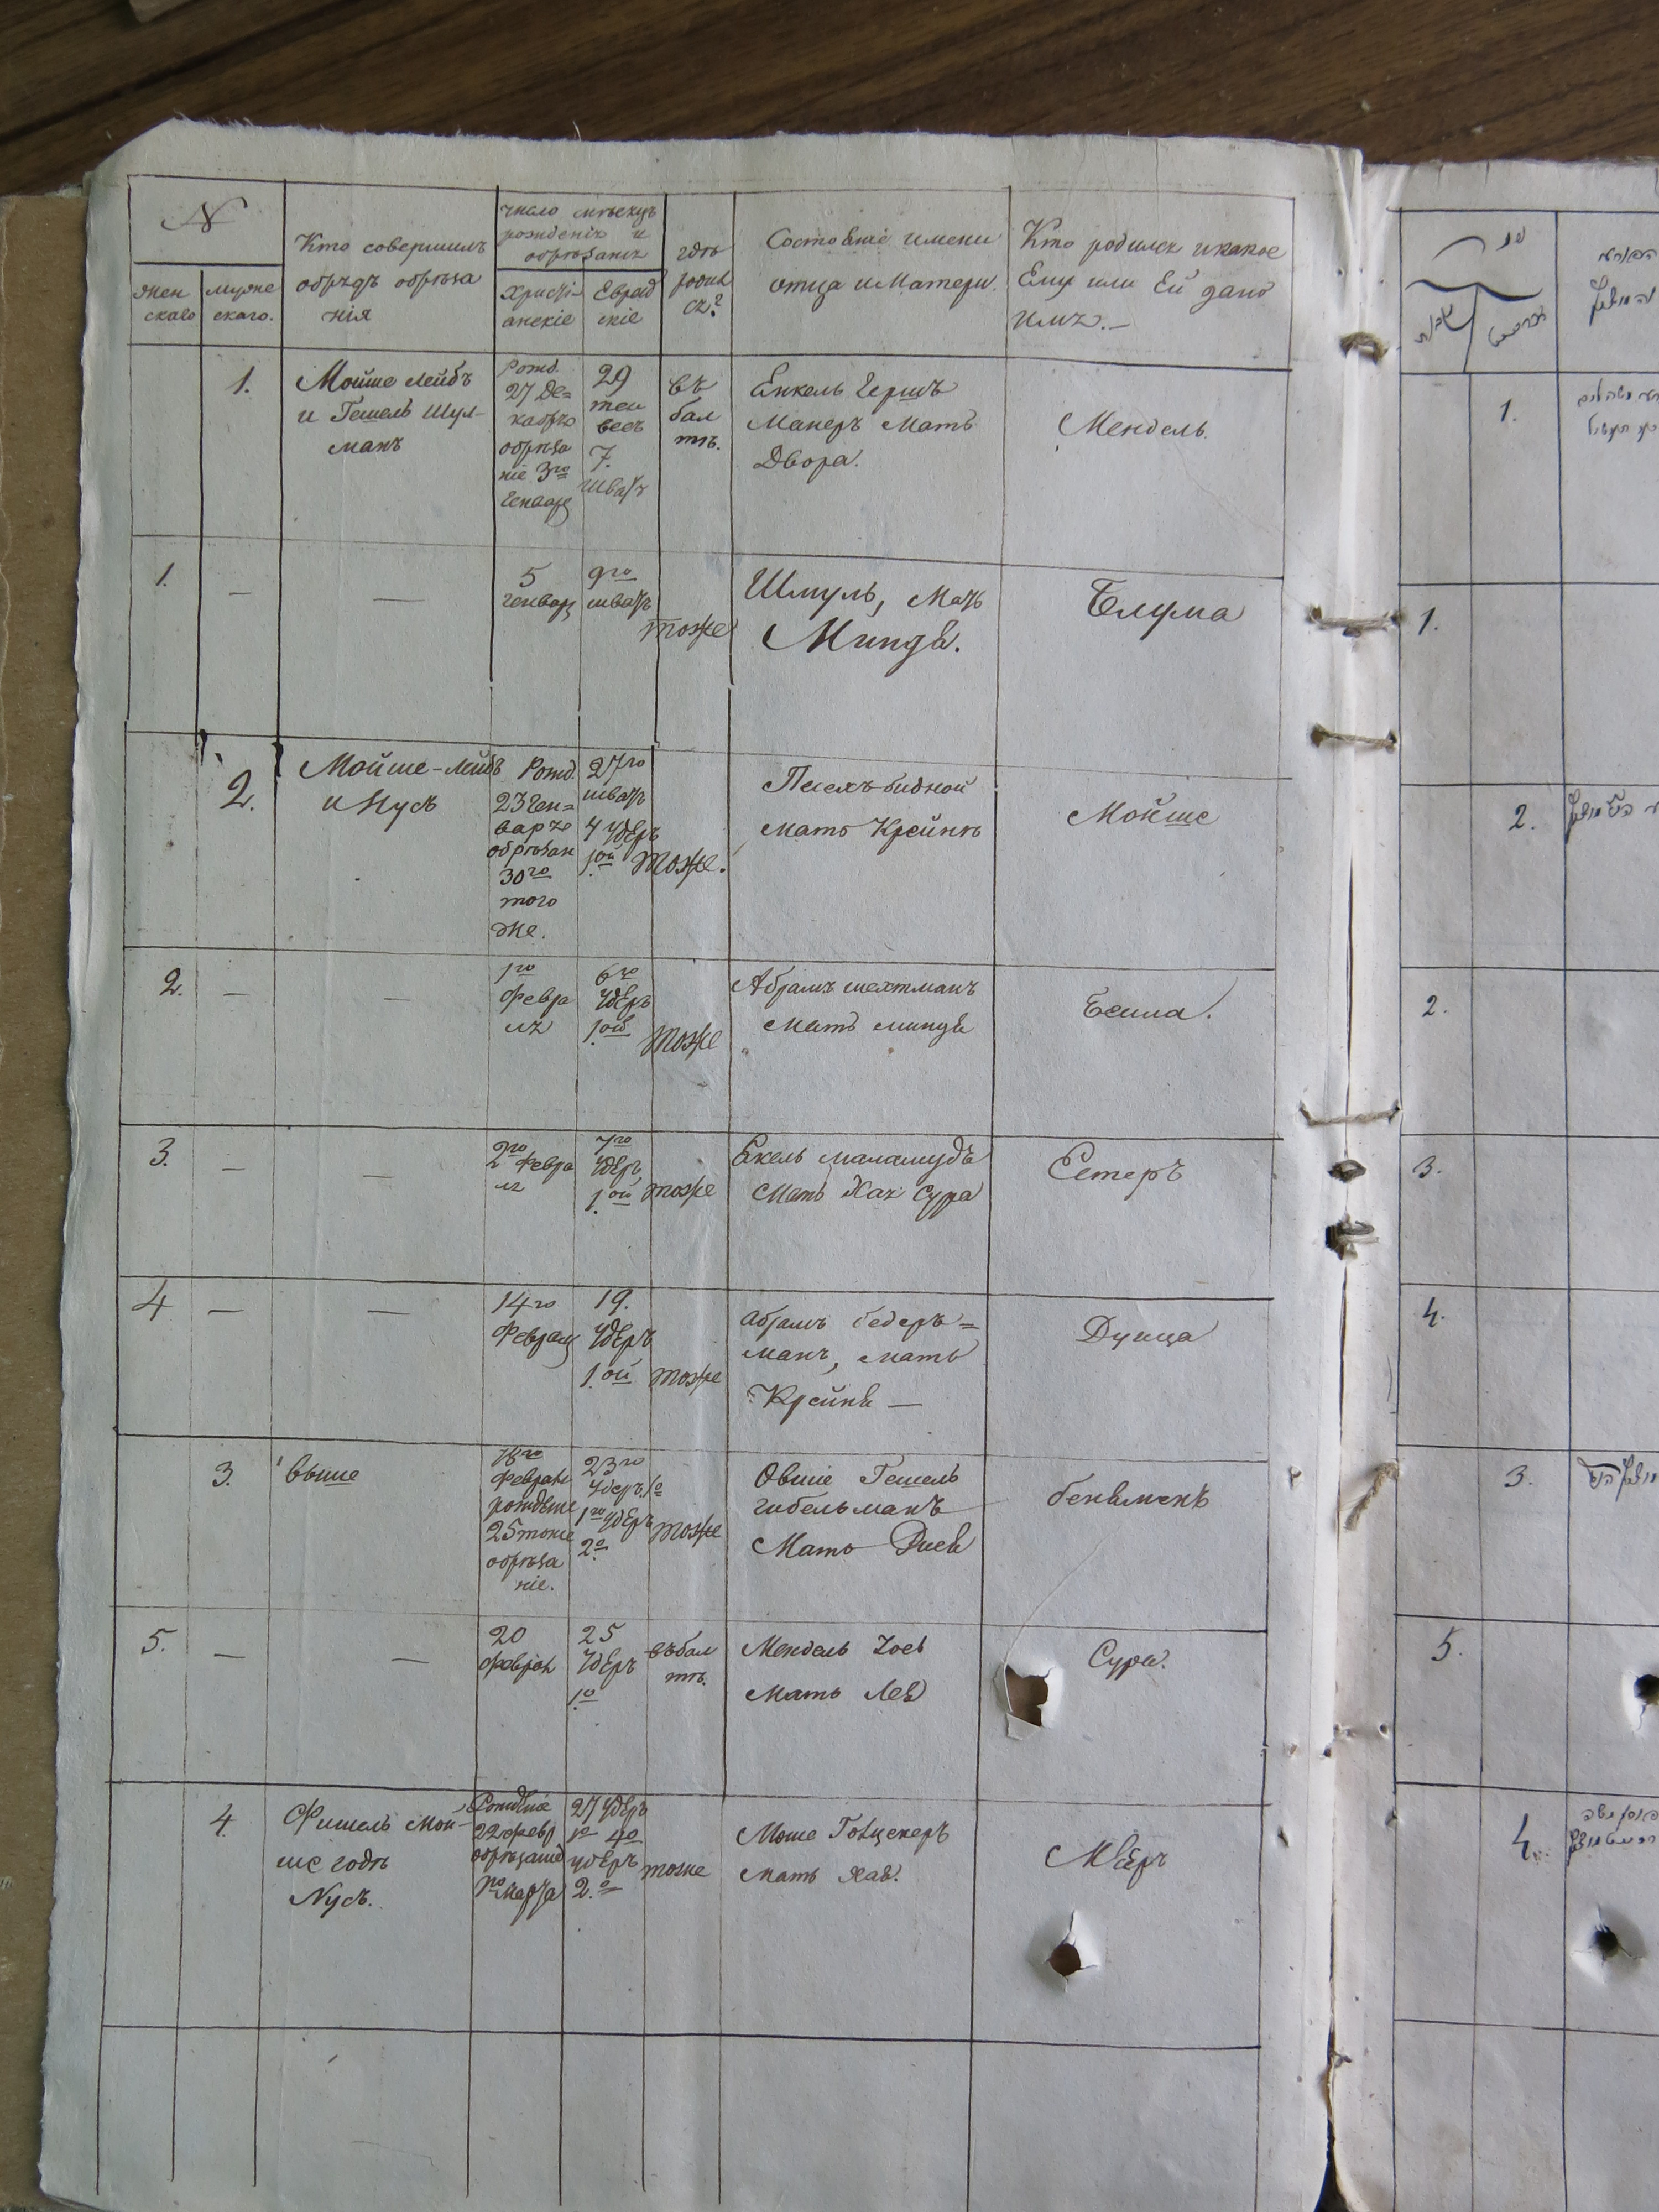 N
женскаго
мужескаго.
Кто совершилъ
обрядъ обрѣза
нія
число мѣсяцъ
рожденія и
обрѣзанія
Христі
анскіе
Еврей
скіе
гдѣ
родил
ся?
Состояніе имени
отца и Матери.
Кто родился и какое
Ему или Ей дано
имя.—
1.
Мойше Лейбъ
и Гешель Шул-
манъ
Рожд.
27 Де=
кабря
обрѣза
ніе 3го
Генваря
29
тей
весъ
7.
Шватъ
въ
бал
тѣ.
Енкель Гершъ
Макеръ Мать
Двора.
Мендель.
1.
—
—
5
генваря
9го
шватъ
тоже
Шмуль, Мать
Минда.
Блума
2.
Мойше-Лейбъ
и Нусъ
Рожд.
23 Ген=
варя
обрѣзан
30го
того
же.
27го
шватъ
4 Удеръ
1.ой
тоже.
Песехъ бидной
мать Крейнѣ
Мойше
2.
—
—
1го
Февра
ля
6го
Удеръ
1.ой
тоже
Абрамъ шехтманъ
Мать минда
Бейла.
3.
—
—
2го Февра
ля
7го
Удеръ
1.ой
тоже
Екель маламудъ
Мать Хая Сура
Естеръ
4
—
—
14го
Февраля
19.
Удеръ
1.ой
тоже
Абрамъ бедеръ=
манъ, мать
Крейна —
Думца
3.
выше
18го
Февраля
рожденіе
25 тоже
обрѣза
ніе.
23го
Удеръ 1о
1го Удеръ
2.о
тоже
Овшіе Гешель
гибельманъ
Мать
беньменъ
5.
—
—
20
Февраля
25
Удеръ
1о
въ бал
тѣ.
Мендель
Мать Леа
Сура.
4.
Фишель Мой-
ше годѣ
Нусъ.
Рожденіе
22 февр
обрѣзаніе
1го Марта
27 Удеръ
1о 4о
удеръ
2.о
тоже
Моше
мать Хая.
Меэръ
1.
1.
2.
2.
3.
4.
3.
5.
4.